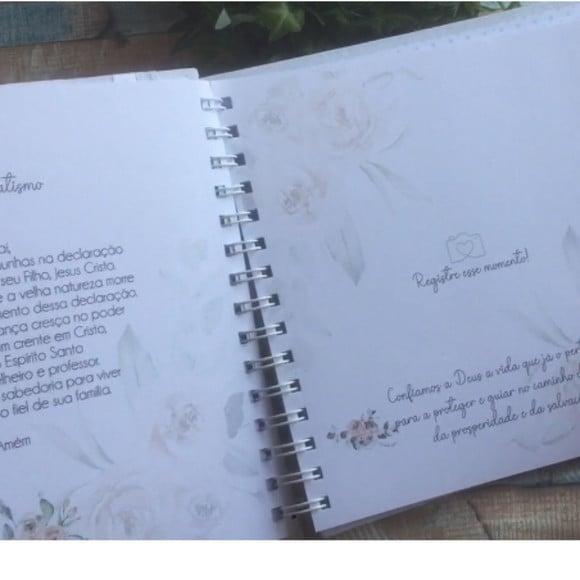 aí,
unhas na declaração
seu Filho, Jesus Cristo.
e a velha natureza morre
mento dessa declaração.
ança cresça no poder
m crente em Cristo,
o Espírito Santo
elheiro e professor,
sabedoria para viver
o fiel de sua família.
Amém
Registre esse momento!
Confiamos a Deus a vida que já o pert
para a proteger e guiar no caminho d
da prosperidade e da salva